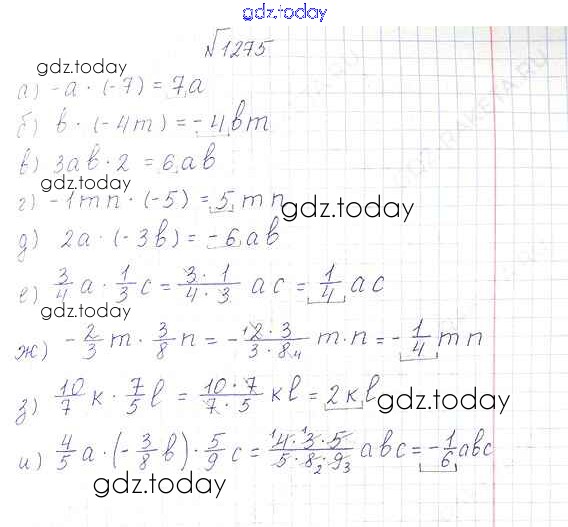 gdz.today
№1275
gdz.today
а) -a · (-7) = 7a
б) b · (-4m) = -4bm
в) 3ab · 2 = 6ab
gdz.today
г) -1mn · (-5) = 5mn
gdz.today
д) 2a · (-3b) = -6ab
е) 3/4 a · 1/3 c = 3·1/4·3 ac = 1/4 ac
gdz.today
ж) -2/3 m · 3/8 n = -2·3/3·8 4 m·n = -1/4 mn
з) 10/7 k · 7/5 l = 10·7/7·5 kl = 2kl
gdz.today
и) 4/5 a · (-3/8 b) · 5/9 c = 1 4·1 3·5/5·8 2·9 3 abc = -1/6 abc
gdz.today